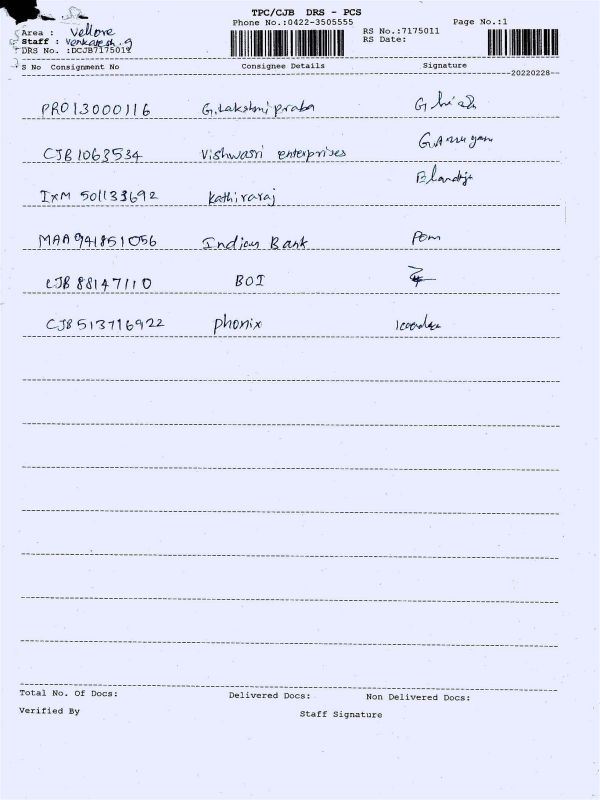 TPC/CJB DRS - PCS
Phone No.:0422-3505555 Page No.:1
Area : Vellore RS No.:7175011
Staff : Venkatesh.g RS Date:
DRS No. :DCJB7175011
S No Consignment No Consignee Details Signature
20220228
PRO13000116 G.Lakshmi praba
CJB1063534 Vishwasri enterprises
IXM 501133692 Kathiraraj
MAA941851056 Indian Bank
CJB 88147110 BOI
CJB513716922 phonix
Total No. Of Docs: Delivered Docs: Non Delivered Docs:
Verified By Staff Signature